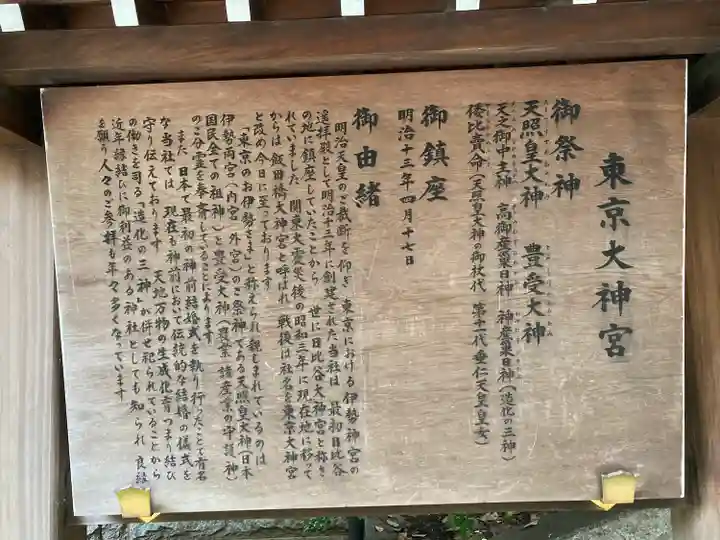 東京大神宮
御祭神
天照皇大神　豊受大神
天之御中主神　高御産巣日神　神産巣日神（造化の三神）
倭比賣命（天照皇大神の御杖代　第十一代垂仁天皇皇女）
御鎮座
明治十三年四月十七日
御由緒
明治天皇のご裁断を仰ぎ　東京における伊勢神宮の
遥拝殿として明治十三年に創建された当社は　最初日比谷
の地に鎮座していたことから　世に日比谷大神宮と称さ
れていました　関東大震災後の昭和三年に現在地に移って
からは飯田橋大神宮と呼ばれ　戦後は社名を東京大神宮
と改め今日に至っております
「東京のお伊勢さま」と称えられ親しまれているのは
伊勢両宮（内宮　外宮）のご祭神である天照皇大神（日本
国民全ての祖神）と豊受大神（農業　諸産業の守護神）
のご分霊を奉斎していることによります
また　日本で最初の神前結婚式を執り行ったことで有名
な当社では　現在も神前において伝統的な結婚の儀式を
守り伝えております　天地万物の生成化育つまり結び
の働きを司る「造化の三神」が併せ祀られていることから
近年縁結びに御利益のある神社としても知られ　良縁
を願う人々のご参拝も年々多くなっています